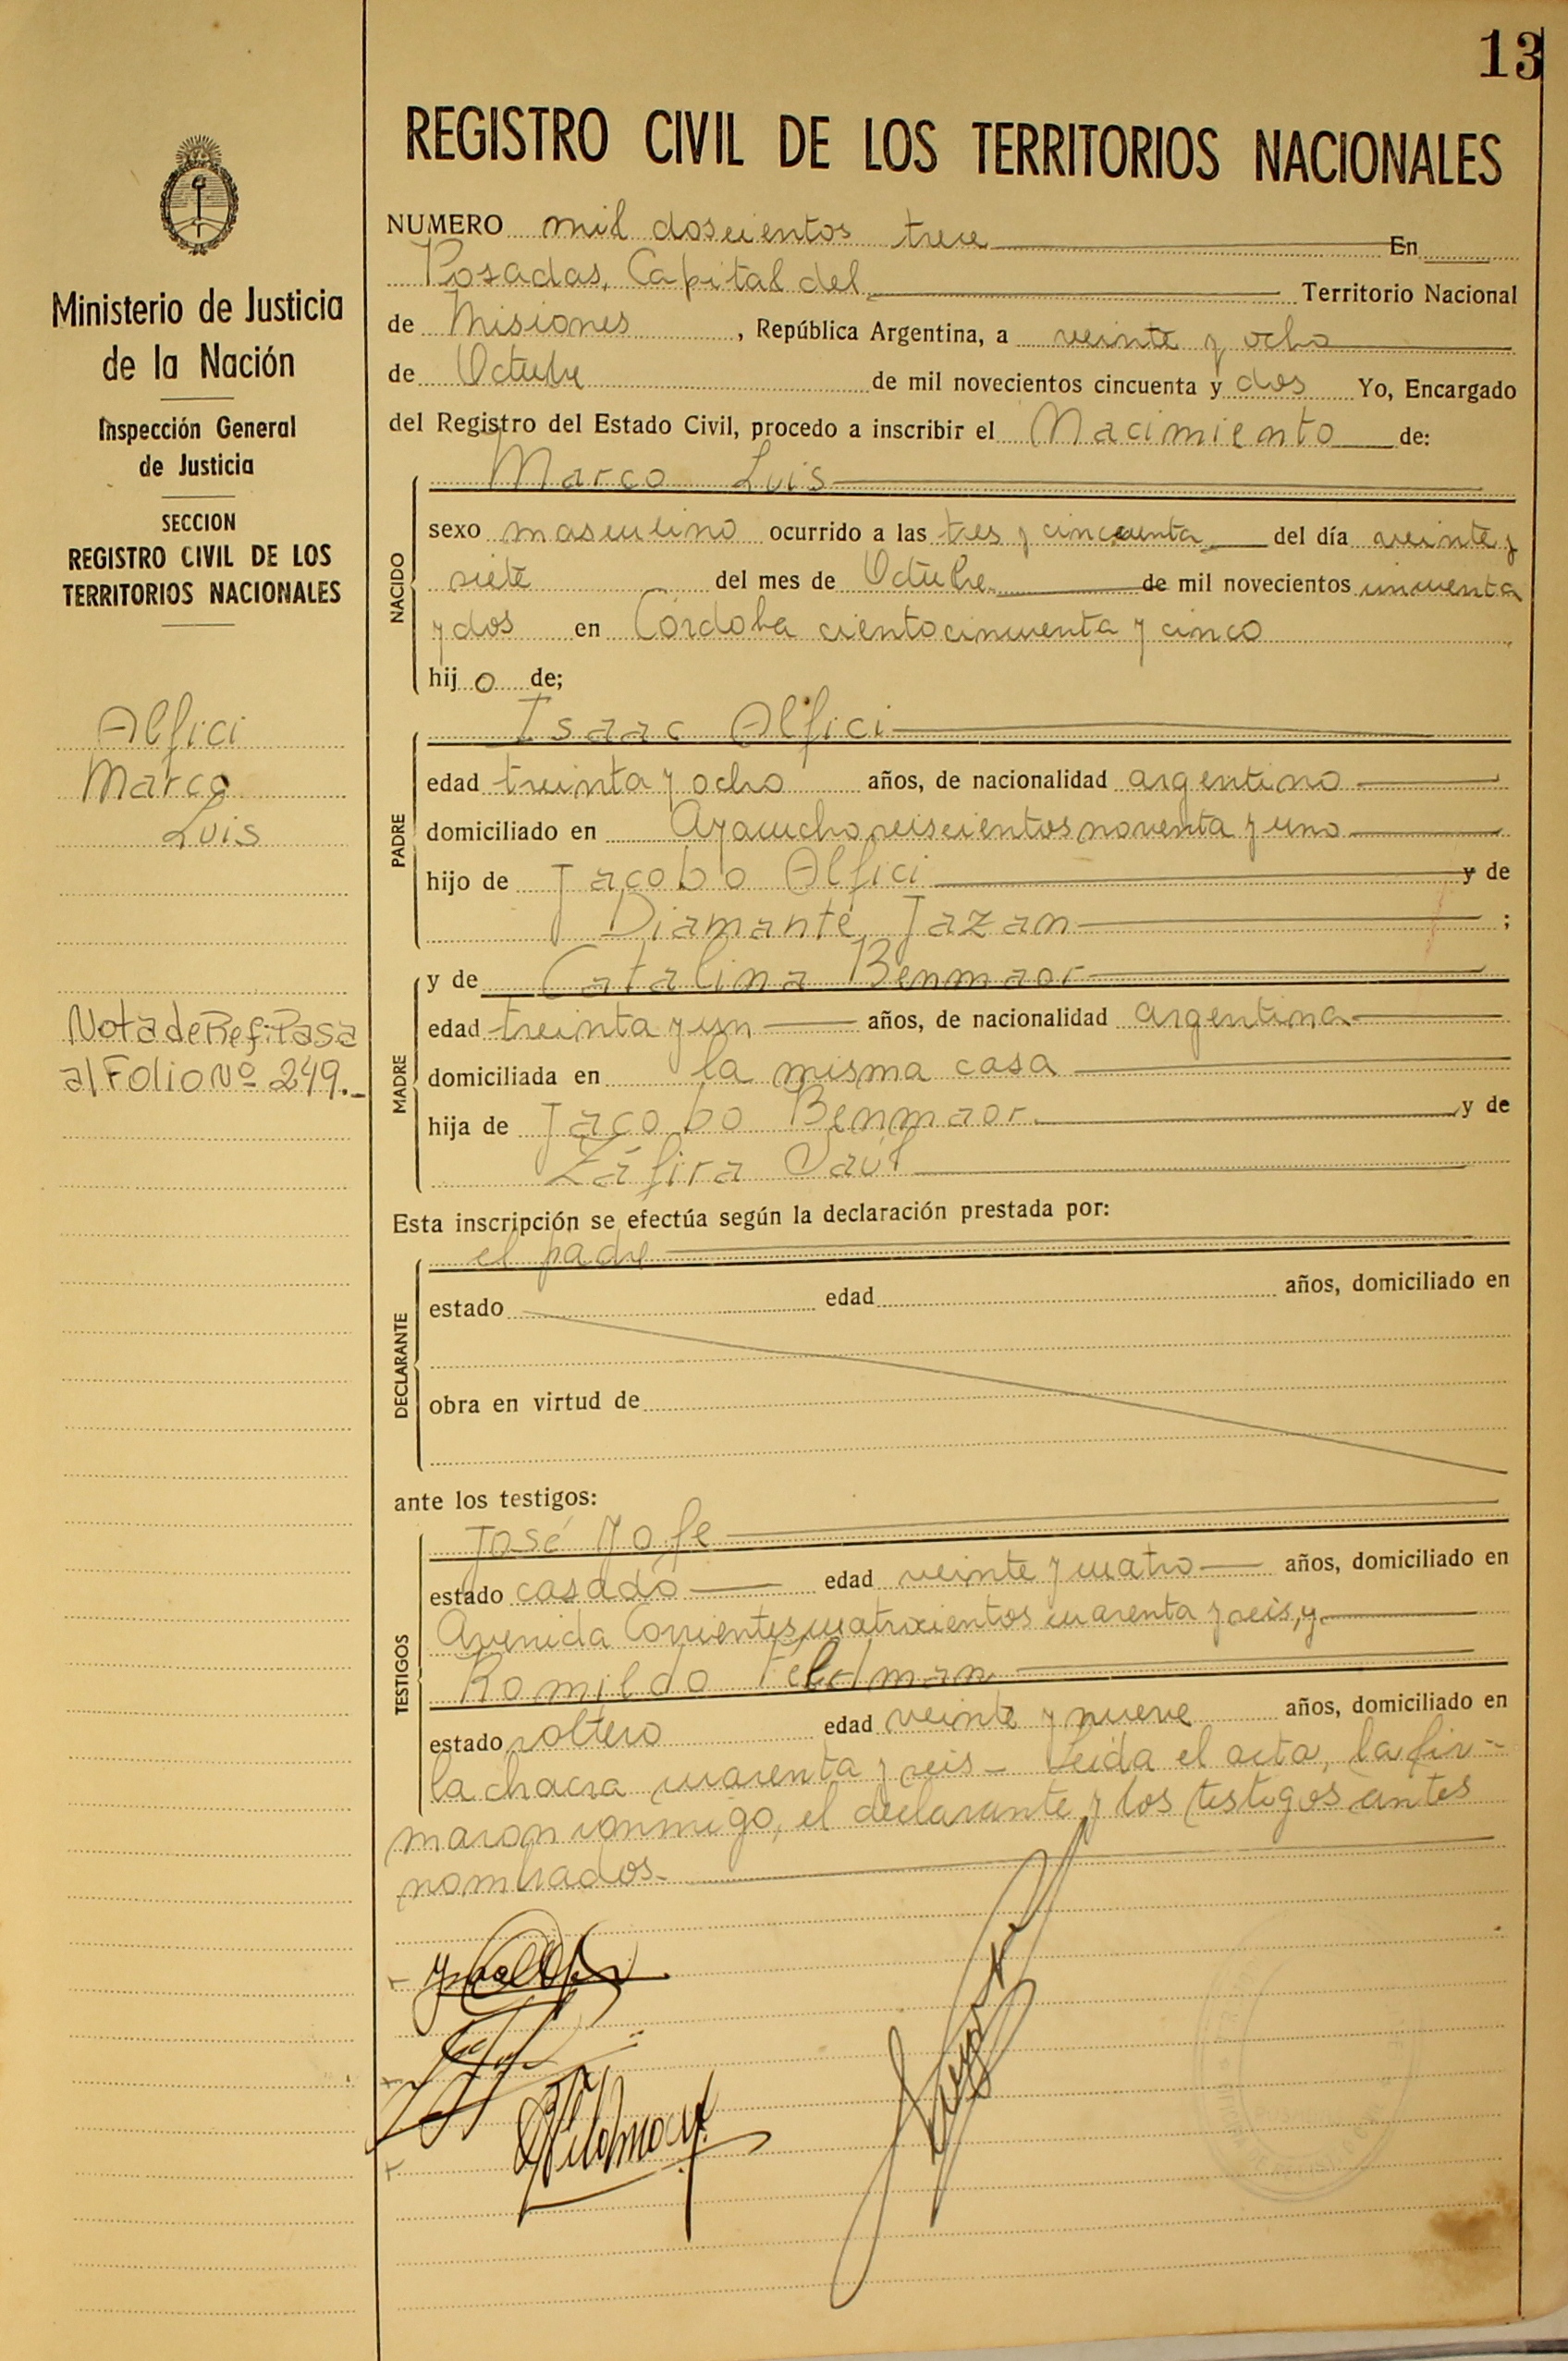 13
REGISTRO CIVIL DE LOS TERRITORIOS NACIONALES
Ministerio de Justicia
de la Nación
Inspección General
de Justicia
SECCION
REGISTRO CIVIL DE LOS
TERRITORIOS NACIONALES
Alfici
Marco
Luis
Nota de Ref: Pasa
al Folio Nº 249.-
NUMERO mil doscientos trece En
Posadas, Capital del Territorio Nacional
de Misiones, República Argentina, a veinte y ocho
de Octubre de mil novecientos cincuenta y dos Yo, Encargado
del Registro del Estado Civil, procedo a inscribir el Nacimiento de:
NACIDO
Marco Luis
sexo masculino ocurrido a las tres y cincuenta del día veinte y
siete del mes de Octubre de mil novecientos cincuenta
y dos en Córdoba ciento cincuenta y cinco
hijo de;
PADRE
Isaac Alfici
edad treinta y ocho años, de nacionalidad argentino
domiciliado en Ayacucho seiscientos noventa y uno
hijo de Jacobo Alfici y de
Diamante Jazan ;
MADRE
y de Catalina Benmaor
edad treinta y un años, de nacionalidad argentina
domiciliada en la misma casa
hija de Jacobo Benmaor y de
Záfira Saúl
Esta inscripción se efectúa según la declaración prestada por:
DECLARANTE
el padre
estado edad años, domiciliado en
obra en virtud de
ante los testigos:
TESTIGOS
José Yofe
estado casado edad veinte y cuatro años, domiciliado en
Avenida Corrientes cuatrocientos cuarenta y seis, y
Romildo Feldman
estado soltero edad veinte y nueve años, domiciliado en
la chacra cuarenta y seis - Leída el acta, la fir-
maron conmigo, el declarante y los testigos antes
nombrados.-